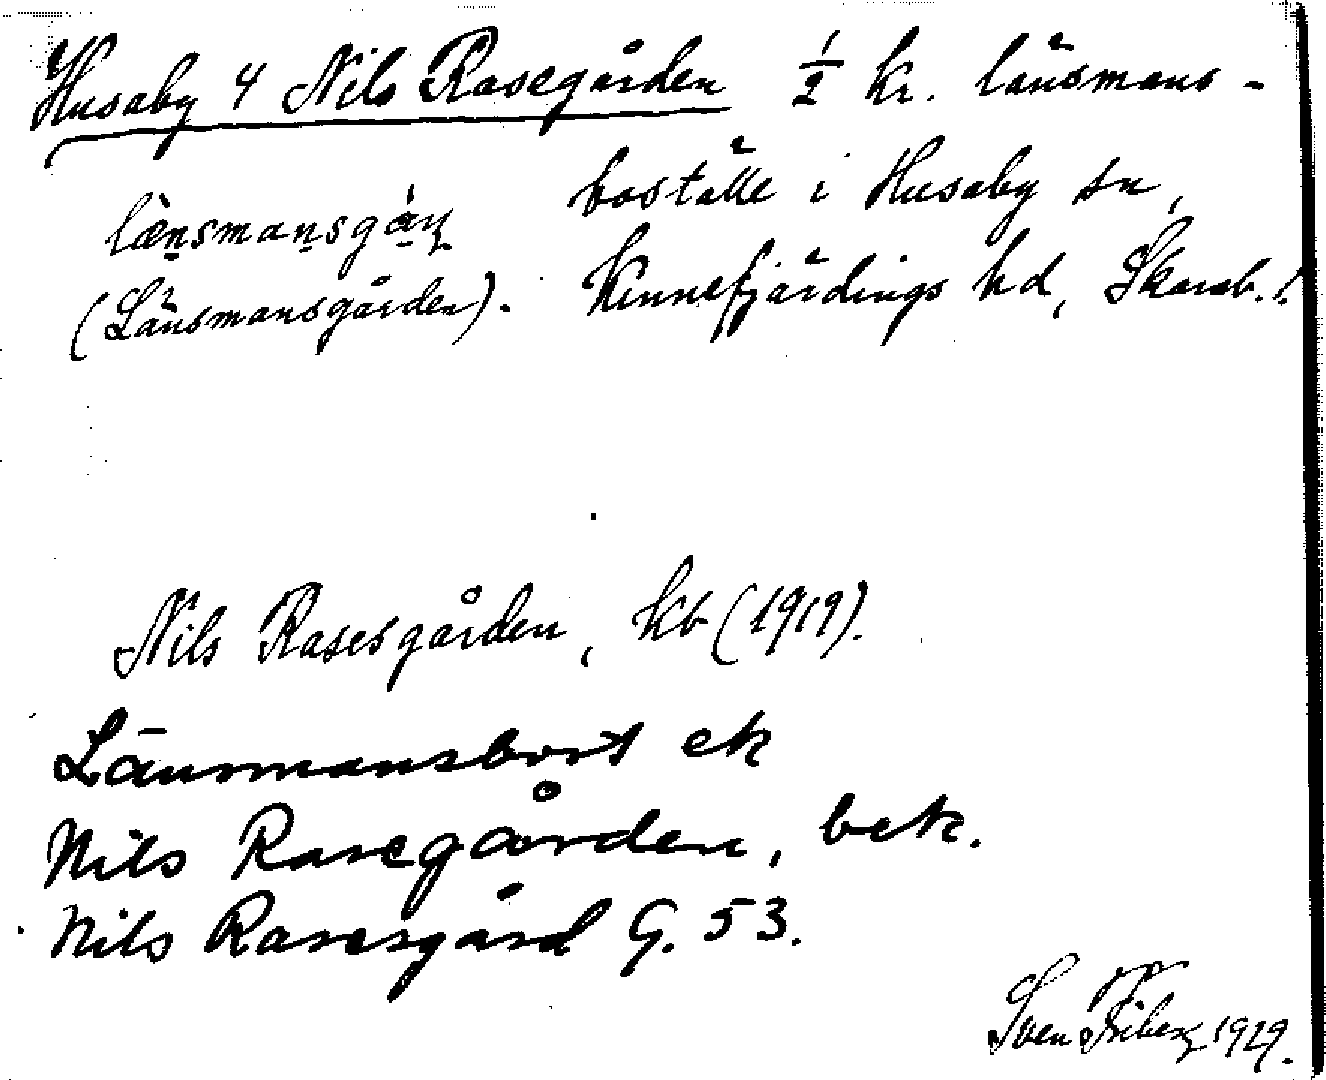 Husaby 4 Nils Rasegården 1/2 kr. länsmans-
boställe i Husaby sn,
lænsmansgáṇ
(Länsmansgården). Kinnefjärdings hd, Skarab. l.
Nils Rasesgården, kb (1919).
Länsmansbost ek
Nils Rasegården, bek.
Nils Rasesgård G. 53.
Sven Friberg 1929.